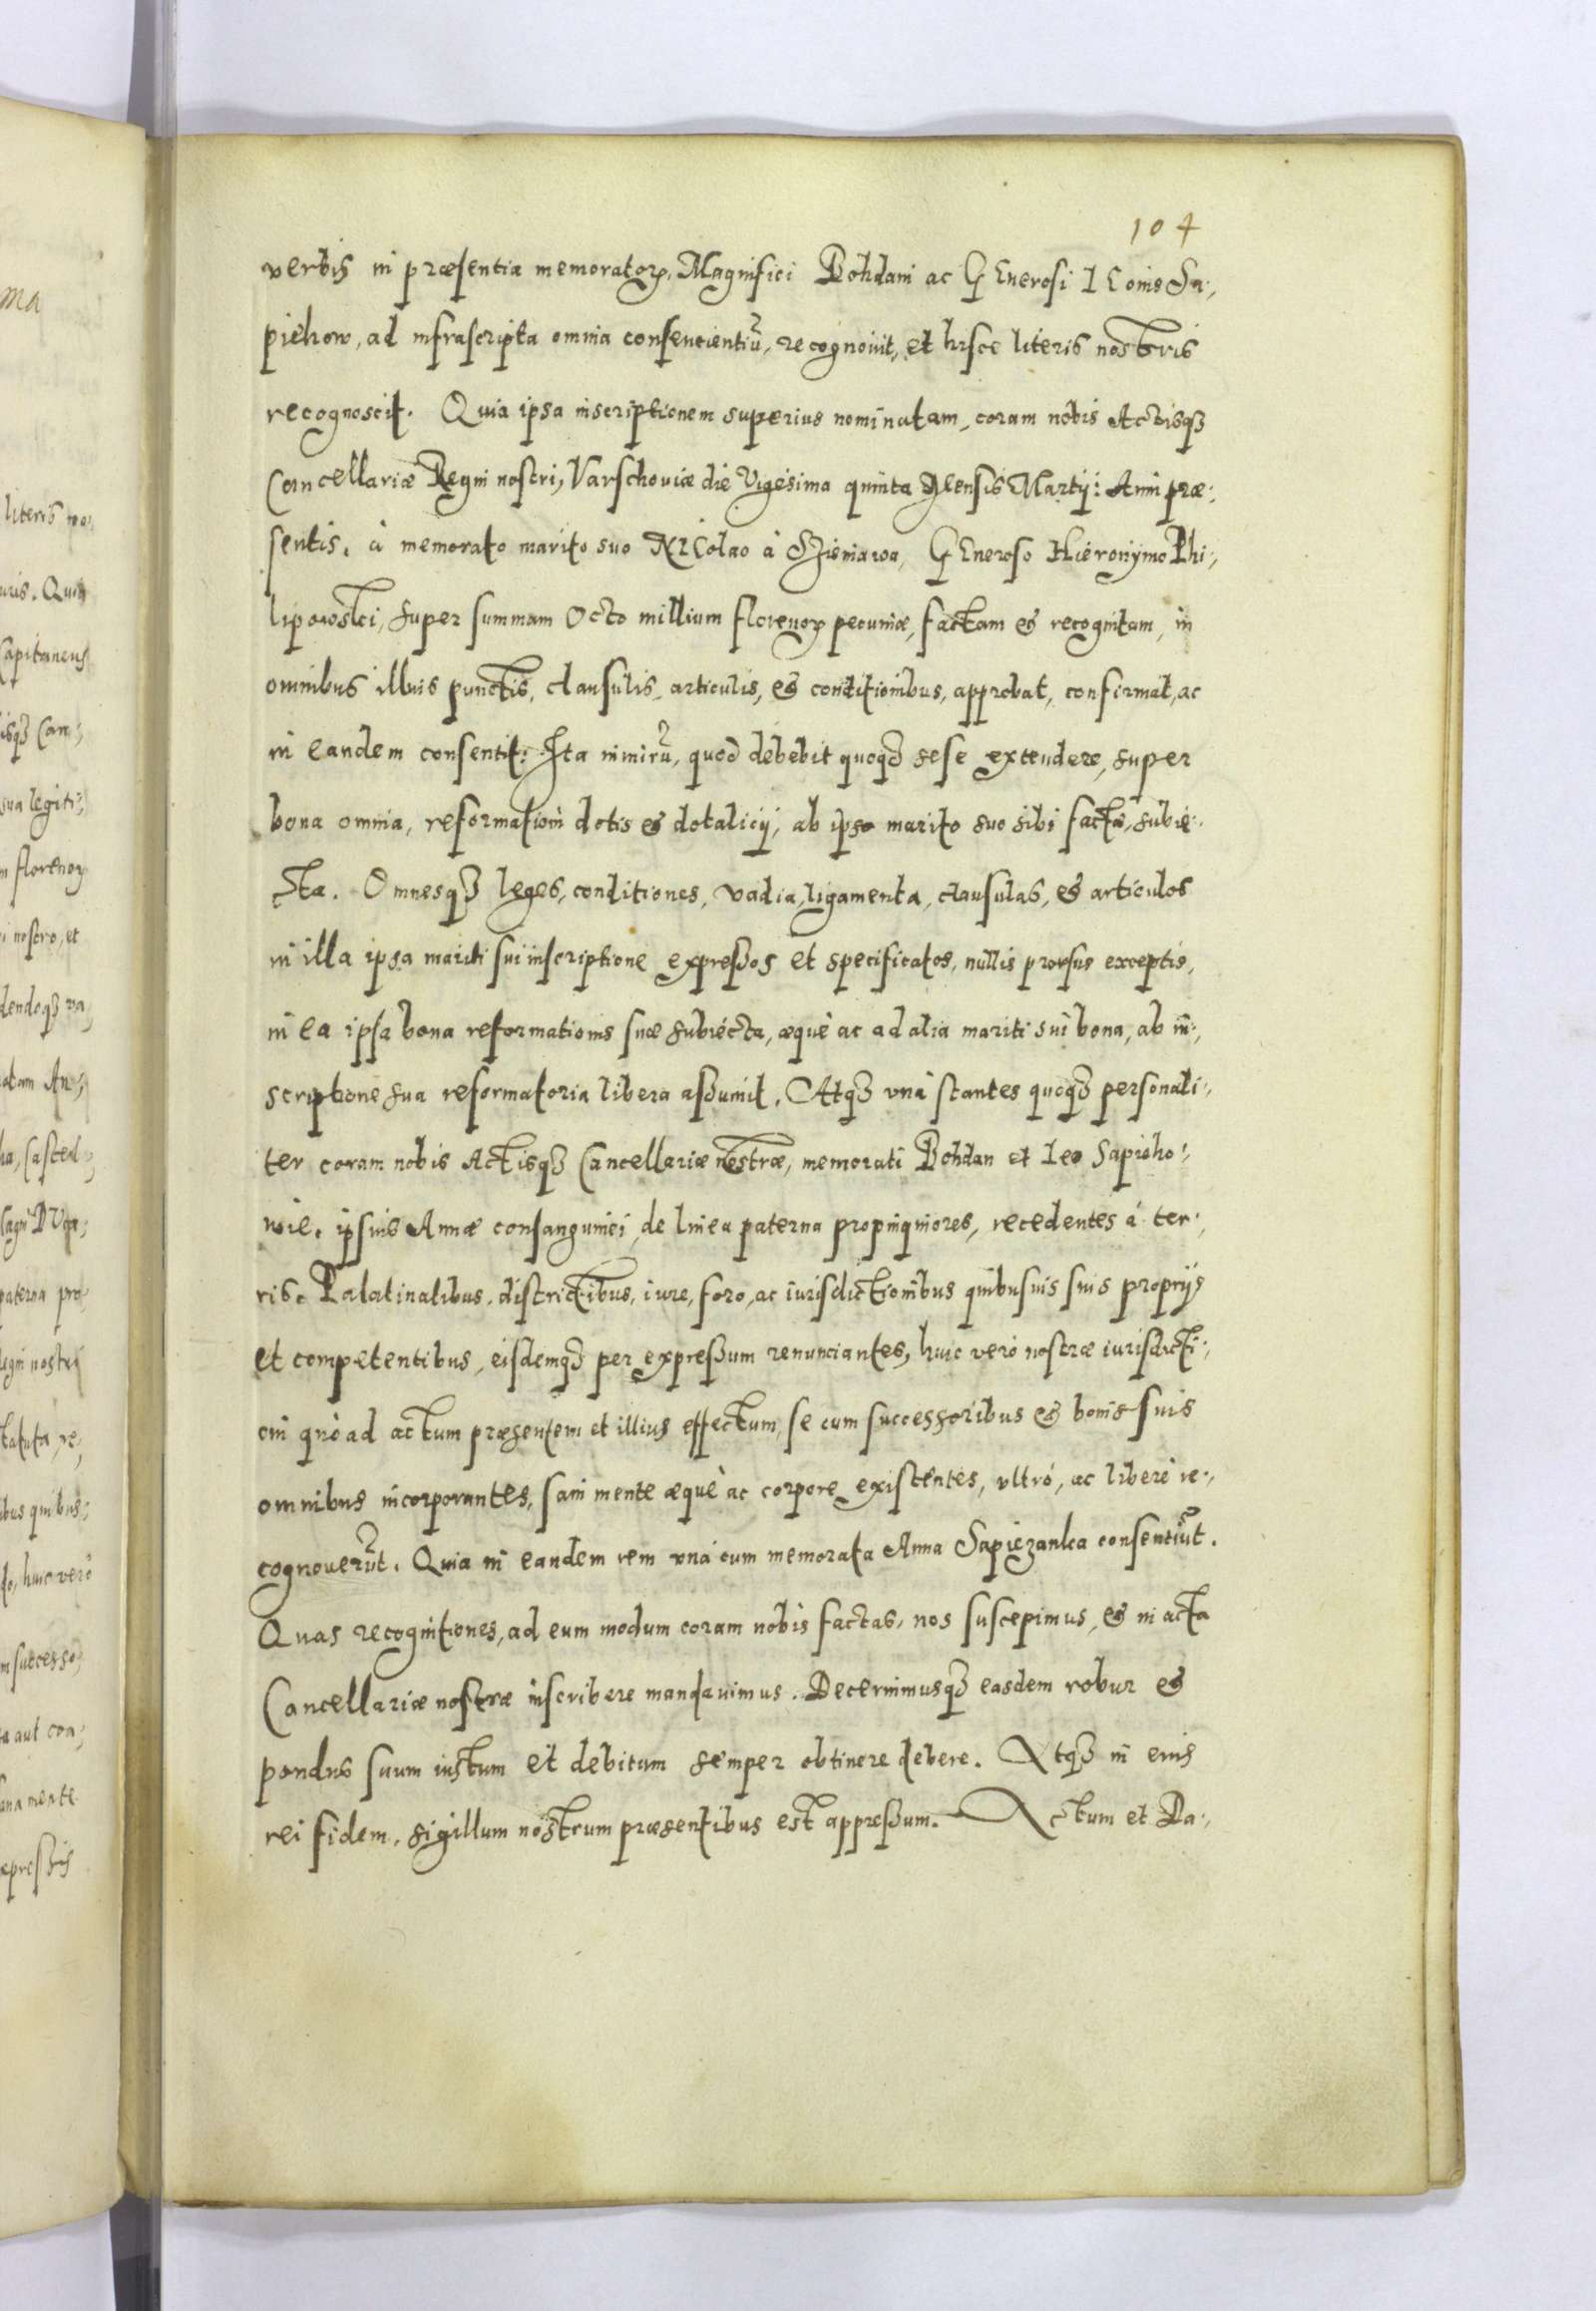 104
verbis in præsentia memoratoꝝ, Magnifici Bohdani ac GEnerosi LEonis Sa-,
piehow, ad infrascripta omnia consencientiũ, recognouit, et hisce literis nostris
recognoscit. Quia ipsa inscriptionem superius nominatam, coram nobis Actisqꝫ
Cancellariæ Regni nostri, Varschouiæ die Vigesima quinta Mensis Martij: Anni præ-,
sentis, à memorato marito suo NIColao à Sieniawa, GEneroso Hieronÿmo Phi-,
lipowski, super summam Octo millium florenoꝝ pecuniæ, factam et recognitam, in
omnibus illius punctis, clausulis, articulis, et conditionibus, approbat, confirmat, ac
in eandem consentit: Ita nimirũ, quod debebit quoqꝫ sese extendere, super
bona omnia, reformationi dotis et dotalicij, ab ipso marito suo sibi factæ, subie-,
cta. Omnesqꝫ leges, conditiones, vadia, ligamenta, clausulas, et articulos
in illa ipsa mariti sui inscriptione expressos et specificatos, nullis prorsus exceptis,
in ea ipsa bona reformationis suæ subiecta, æquè ac ad alia mariti sui bona, ab in-,
scriptione sua reformatoria libera assumit. Atqꝫ vnà stantes quoqꝫ personali-,
ter coram nobis Actisqꝫ Cancellariæ nostræ, memorati Bohdan et Leo Sapieho-,
wie, ipsius Annæ consanguinei, de linea paterna propinquiores, recedentes à ter-,
ris, Palatinatibus, districtibus, iure, foro, ac iurisdictionibus quibusuis suis proprijs
et competentibus, eisdemqꝫ per expressum renunciantes, huic verò nostræ iurisdicti-,
oni quò ad actum præsentem et illius effectum, se cum successoribus et bonis suis
omnibus incorporantes, sani mente æquè ac corpore existentes, vltrò, ac liberè re-,
cognouerũt. Quia in eandem rem vnà cum memorata Anna Sapiezanka consentiũt.
Quas recognitiones, ad eum modum coram nobis factas, nos suscepimus, et in acta
Cancellariæ nostræ inscribere mandauimus. Decernimusqꝫ easdem robur et
pondus suum iustum et debitum semper obtinere debere. Atqꝫ in eius
rei fidem, sigillum nostrum præsentibus est appressum. Actum et Da-,